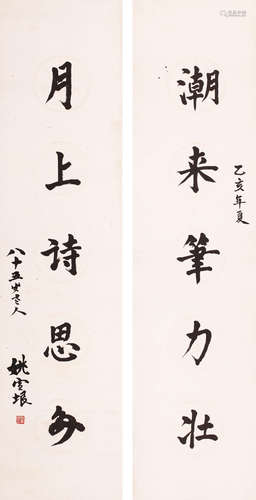 潮来筆力壮
乙亥年夏
月上詩思多
八十五岁老人
姚雪垠